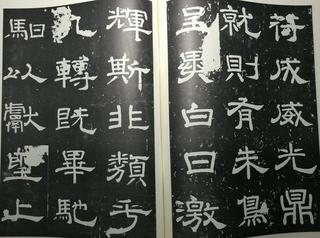 符成威光鼎
就則有朱鳥
呈異白日激
輝斯非類乎
九轉既畢馳
馹以獻聖上